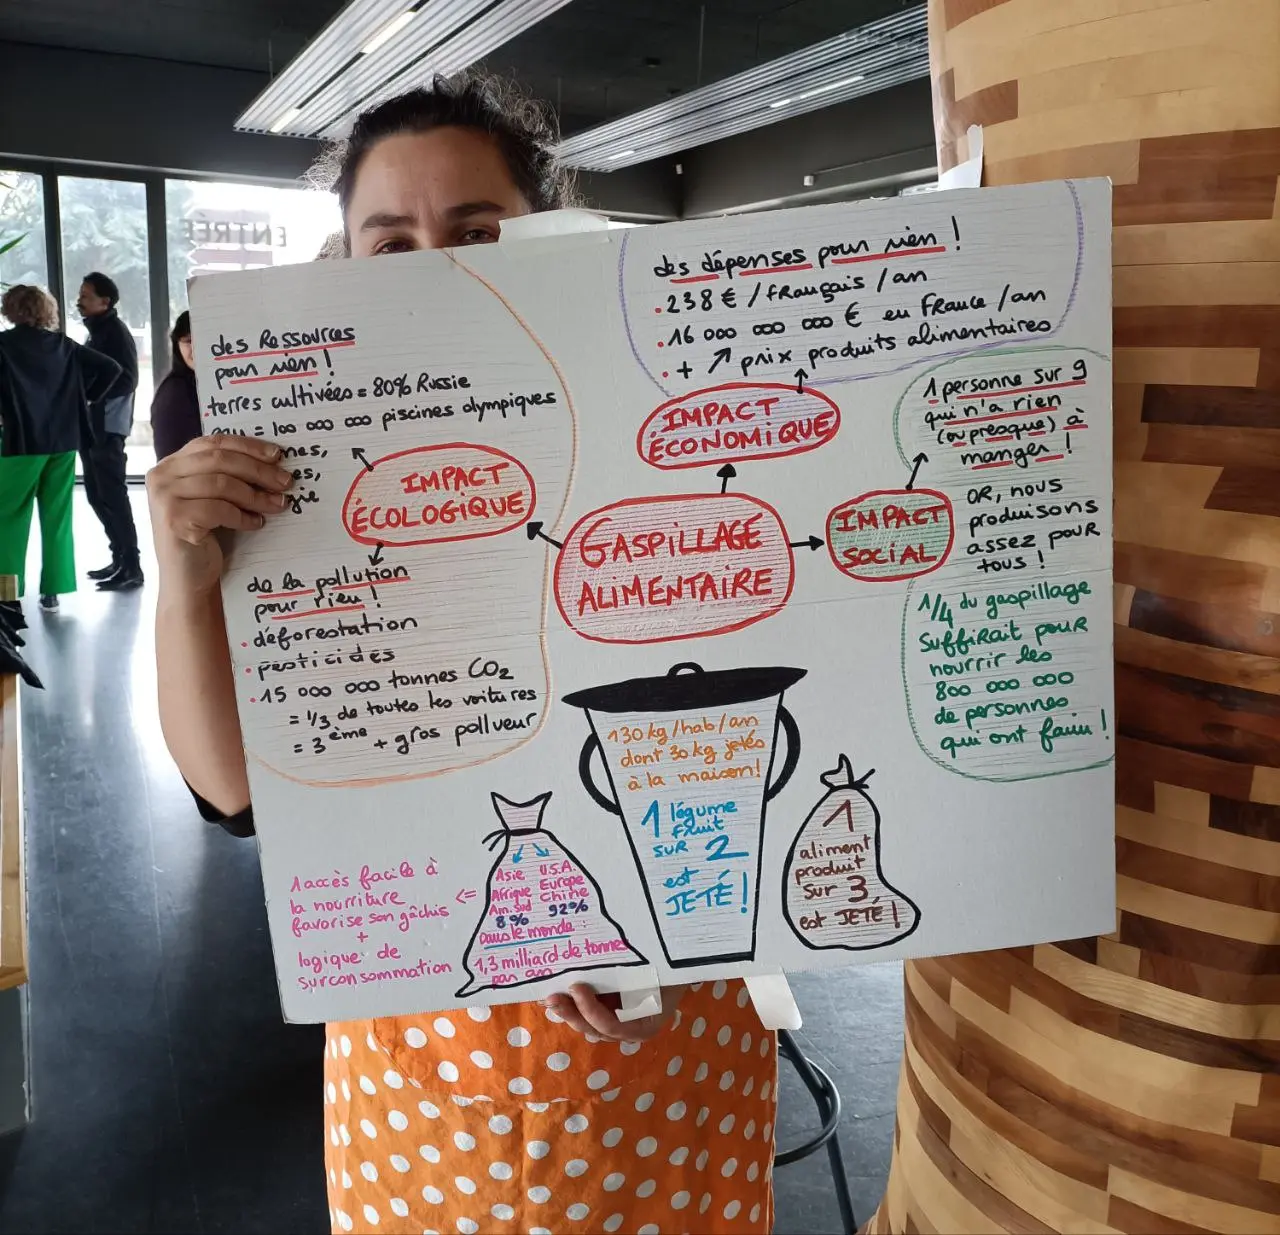 ENTRÉE
des Ressources
pour rien !
.terres cultivées = 80% Russie
= 100 000 000 piscines olympiques
IMPACT
ÉCOLOGIQUE
de la pollution
pour rien !
. déforestation
. pesticides
. 15 000 000 tonnes CO2
= 1/3 de toutes les voitures
= 3ème + gros pollueur
des dépenses pour rien !
. 238 € / français / an
. 16 000 000 000 € en France / an
. + ↗ prix produits alimentaires
IMPACT
ÉCONOMIQUE
GASPILLAGE
ALIMENTAIRE
IMPACT
SOCIAL
1 personne sur 9
qui n'a rien
(ou presque) à
manger !
OR, nous
produisons
assez pour
tous !
1/4 du gaspillage
suffirait pour
nourrir les
800 000 000
de personnes
qui ont faim !
130 kg/hab/an
dont 30 kg jetés
à la maison!
1 légume
fruit
sur 2
est
JETÉ !
1
aliment
produit
sur 3
est JETÉ !
Asie U.S.A.
Afrique Europe
Am. Sud Chine
8% 92%
Dans le monde :
1,3 milliard de tonnes
par an
1 accès facile à
la nourriture <=
favorise son gâchis
+
logique de
surconsommation